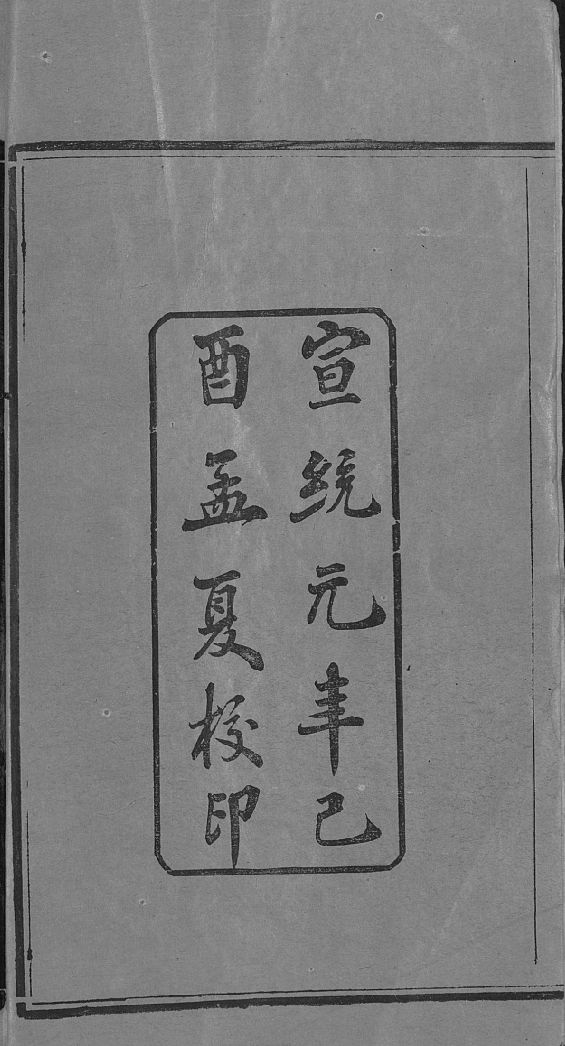 宣統元年己
酉孟夏校印